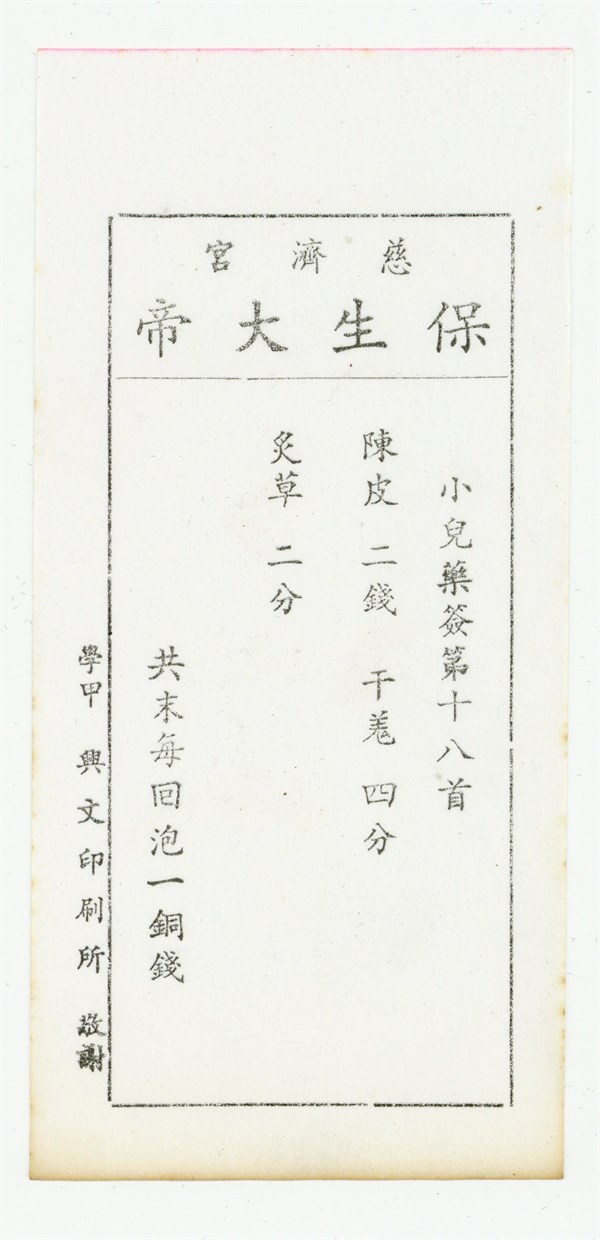 慈濟宮
保生大帝
小兒藥簽第十八首
陳皮 二錢 干羗 四分
炙草 二分
共末每回泡一銅錢
學甲 興文印刷所 敬謝